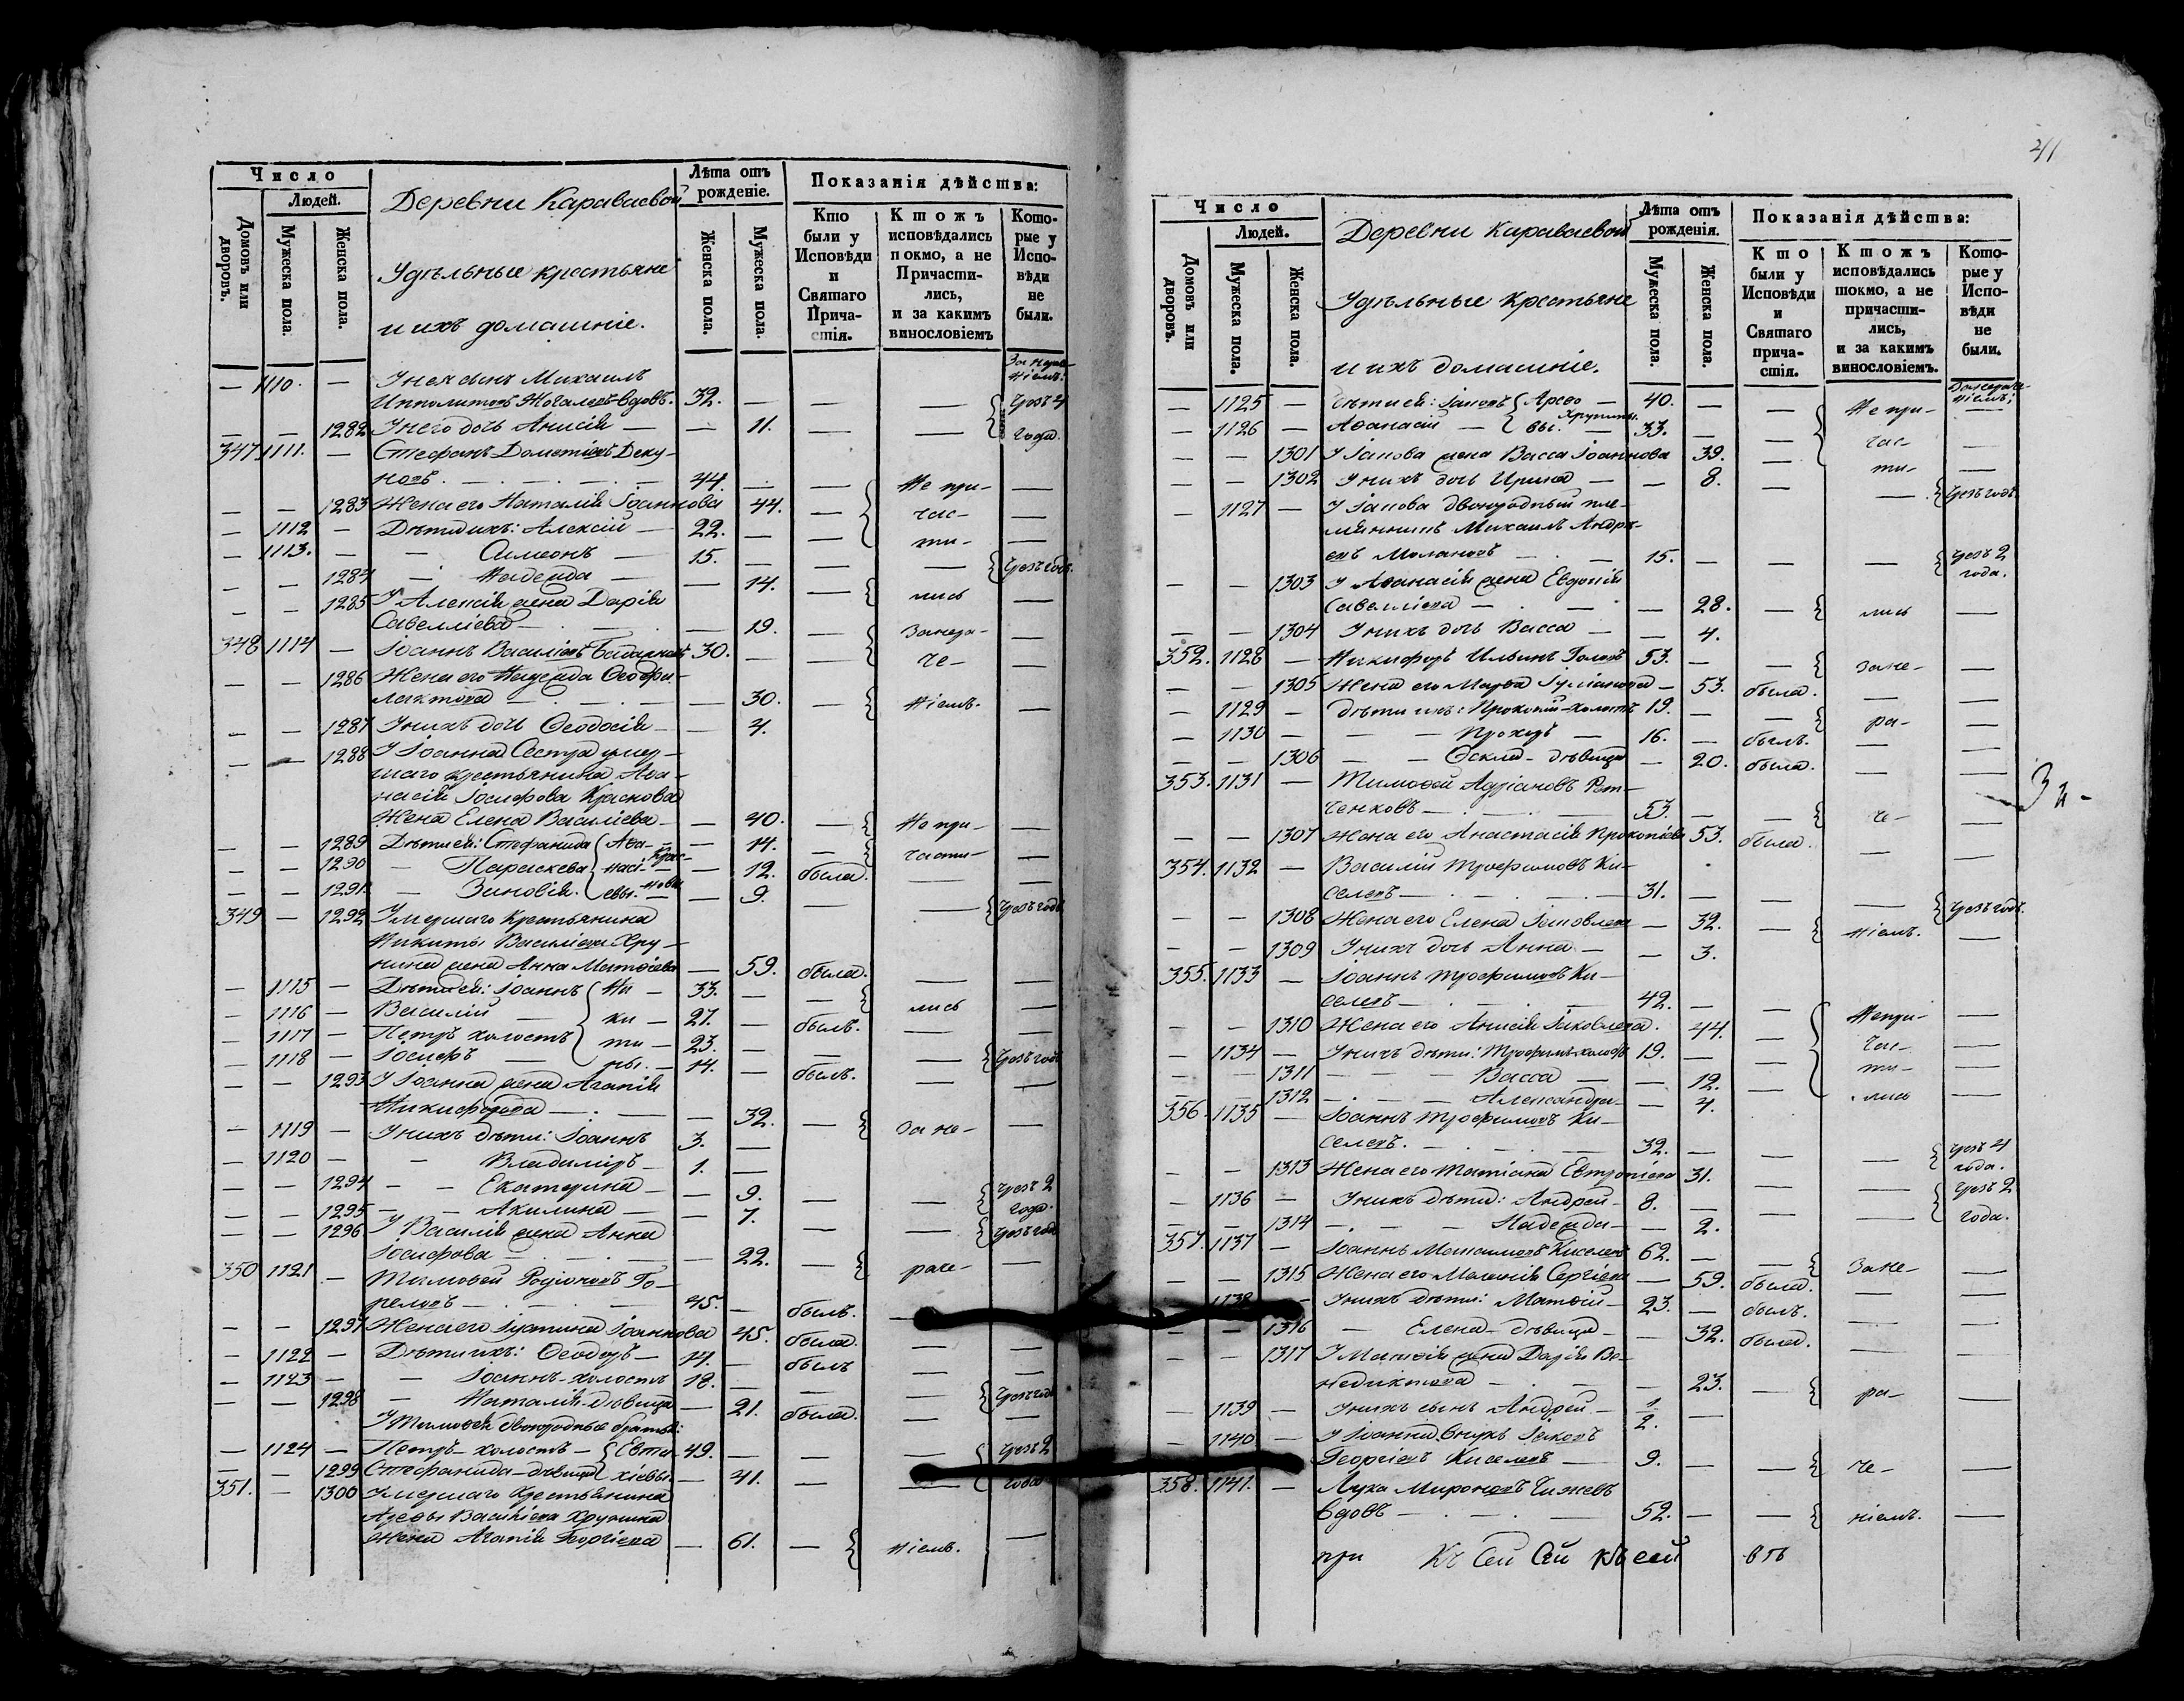 Число
Людей.
Домовъ или дворовъ.
Мужеска пола.
Женска пола.
Деревни Караваевой
Удѣльные крестьяне
и ихъ домашніе.
Лѣта отъ рожденіе.
Женска пола.
Мужеска пола.
Показанія дѣйства:
Кто были у Исповѣди и Святаго Причастія.
Ктожъ исповѣдались покмо, а не Причастились, и за какимъ винословіемъ
Которые у Исповѣди не были.
— 1110. — У нея сынъ Михаилъ
Ипполитовъ вдовъ. 32. — — — чрезъ 4
— — 1282 У него дочь Анисія — — 11. — — года.
347 1111. — Стефанъ Дометіевъ Деку-
новъ. — 44. — — Не при- —
— — 1283 Жена его Наталія Іоаннова 44. — час- —
— 1112 — Дѣти ихъ: Алексій — 22. — — ти- —
— 1113. — — Симеонъ — 15. — — — чрезъ годъ.
— — 1284 — Надежда — — 14. — лись —
— — 1285 У Алексія жена Дарія
Савелліева — — 19. — занера- —
348 1114 — Іоаннъ Василіевъ 30. — — че- —
— — 1286 Жена его Надежда Ѳеофи-
лактова — — 30. — ніемъ. —
— — 1287 У нихъ дочь Ѳеодосія — — 4.
— — 1288 У Іоанна Сестра умер-
шаго крестьянина Аѳа-
насія Іосифова Краснова
Жена Елена Василіева — — 40. — Не при- —
— — 1289 Дѣти ей: Стефанида Аѳа- — 14. — части- —
— — 1290 — Параскева насі- Крас- — 12. была. — —
— — 1291 — Зиновія. евы. новы — 9. — — чрезъ годъ
349 — 1292 Умершаго Крестьянина
Никиты Василіева Хру-
нина жена Анна Матѳіева — 59. была. — —
— 1115 — Дѣти ей: Іоаннъ Ни- 33. — — лись —
— 1116 — Василій — ки- 27. — былъ. — —
— 1117 — Петръ холостъ ти- 23. — — — чрезъ годъ
— 1118 — Іосифъ — ны. 14. — былъ. — —
— — 1293 У Іоанна жена Агапія
Никифорова — — 32. — за не- —
— 1119 — У нихъ дѣти: Іоаннъ 3. —
— 1120 — — Владиміръ 1. —
— — 1294 — — Екатерина — — 9. — — чрезъ 2
— — 1295 — — Акилина — — 7. года.
— — 1296 У Василія жена Анна — — чрезъ годъ
Іосифова — — 22. — раче- —
350 1121 — Тимоѳей Родіоновъ Го-
реловъ — 45. — былъ. —
— — 1297 Жена его Іустина Іоаннова 45. была. — —
— 1122 — Дѣти ихъ: Ѳеодоръ — 14. — былъ — —
— 1123 — — Іоаннъ-холостъ 18. — — — чрезъ годъ
— — 1298 — Наталія-дѣвица — 21. была. — —
У Тимоѳея двоюродные братья:
— 1124 — Петръ-холостъ — Евти- 49. — — — чрезъ 2
— — 1299 Стефанида-дѣвица хіевы — 41. — — года
351. — 1300 Умершаго Крестьянина
Арефы Василіева Хрунина
жена Агапія Георгіева — 61. — ніемъ. —
41
Число
Людей.
Домовъ или дворовъ.
Мужеска пола.
Женска пола.
Деревни Караваевой
Удѣльные Крестьяне
и ихъ домашніе.
Лѣта отъ рожденія.
Мужеска пола.
Женска пола.
Показанія дѣйства:
Кто были у Исповѣди и Святаго причастія.
Ктожъ исповѣдались шокмо, а не причастились, и за какимъ винословіемъ.
Которые у Исповѣди не были.
— 1125 — Дѣти ей: Іаковъ Арефо- 40. — — Не при- —
— 1126 — Аѳанасій — вы. Хрунины. 33. — — час- —
— — 1301 У Іакова жена Васса Іоаннова 39. — ти- —
— — 1302 У нихъ дочь Ирина — — 8. — — чрезъ годъ.
— 1127 — У Іакова двоюродный пле-
мянникъ Михаилъ Андре-
евъ — 15. — — — чрезъ 2
года.
— — 1303 У Аѳанасія жена Евдокія
Савелліева — — 28. — лись —
— — 1304 У нихъ дочь Васса — — 4.
352. 1128 — Никифоръ Ильинъ 53. — — зане- —
— — 1305 Жена его Марѳа — 53. была. — —
— 1129 — Дѣти ихъ: Прокопій-холостъ 19. — — ра- —
— 1130 — — Прохоръ — 16. — былъ. — —
— — 1306 — — Ѳекла-дѣвица — 20. была. — —
353. 1131 — Тимоѳей Адріановъ
ченковъ — 53. — — че- —
— — 1307 Жена его Анастасія Прокопіева 53. была. — —
354. 1132 — Василій Трофимовъ Ки-
селевъ — 31. — — — чрезъ годъ.
— — 1308 Жена его Елена Іаковлева — 32. — ніемъ. —
— — 1309 У нихъ дочь Анна — — 3.
355. 1133 — Іоаннъ Трофимовъ Ки-
селевъ — 42. — — Не при- —
— — 1310 Жена его Анисія Іаковлева. 44. — час- —
— 1134 — У нихъ дѣти: Трофимъ-холостъ 19. — ти- —
— — 1311 — — Васса — — 12. лись —
— — 1312 — — Александра — — 4.
356. 1135 — Іоаннъ Трофимовъ Ки-
селевъ. — 32. — — — чрезъ 4
года.
— — 1313 Жена его Татіана Евтропіева 31. — — чрезъ 2
— 1136 — У нихъ дѣти: Андрей — 8. — — года.
— — 1314 — — Надежда — — 2.
357. 1137 — Іоаннъ Киселевъ 62. — — Зане- —
— — 1315 Жена его Меланія Сергіева — 59. была. — —
1138 — У нихъ дѣти: Матѳій — 23. — былъ. — —
— — 1316 — Елена-дѣвица — — 32. была. — —
— — 1317 У Матѳія жена Дарія Ве-
недиктова — — 23. — ра- —
— 1139 — У нихъ сынъ Андрей — 1/2. —
— 1140 — У Іоанна внукъ Іаковъ
Георгіевъ Киселевъ — 9. — — че- —
358. 1141. — Лука Мироновъ Чижевъ
вдовъ — 52. — — ніемъ. —
при Къ Сей Сей къ сей въ